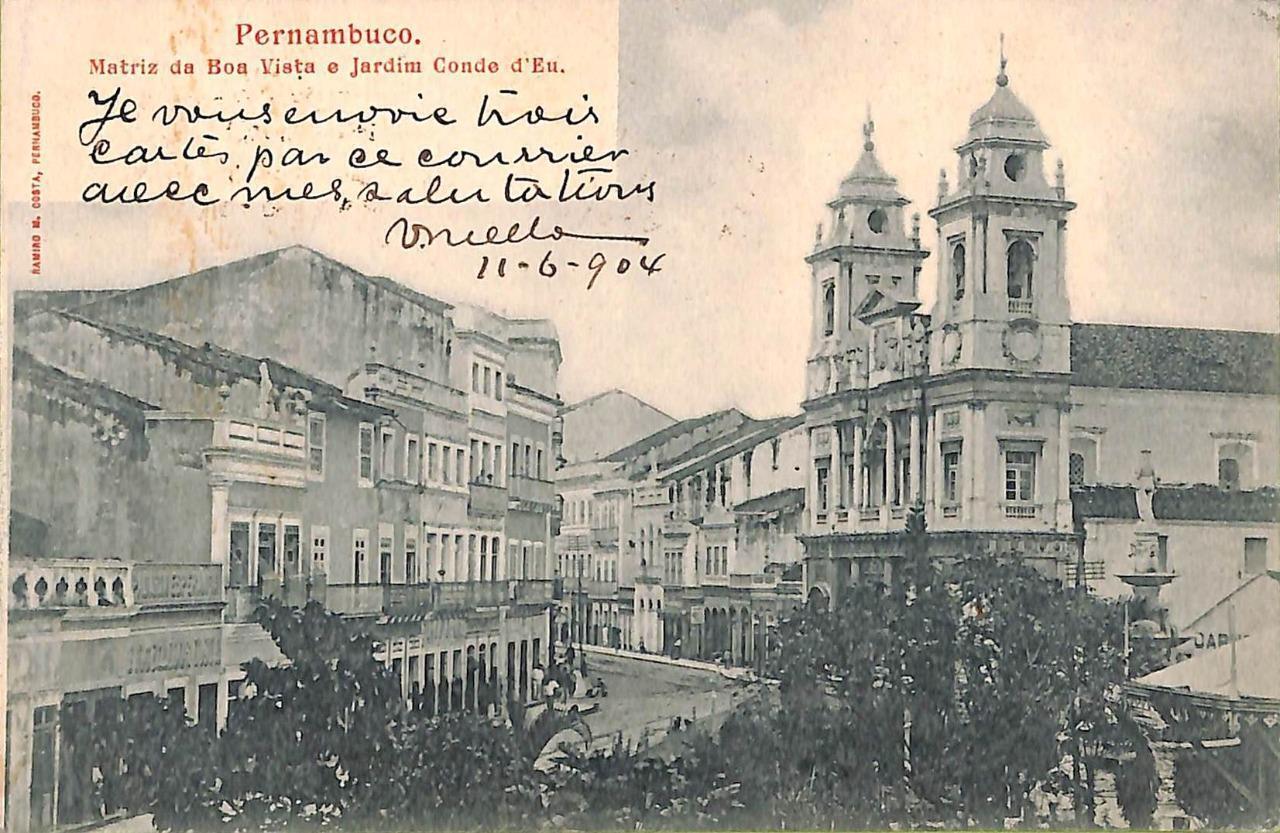 Pernambuco.
Matriz da Boa Vista e Jardim Conde d'Eu.
RAMIRO M. COSTA, PERNAMBUCO.
Je vous envoie trois
cartes par ce courrier
avec mes salutations
11-6-904